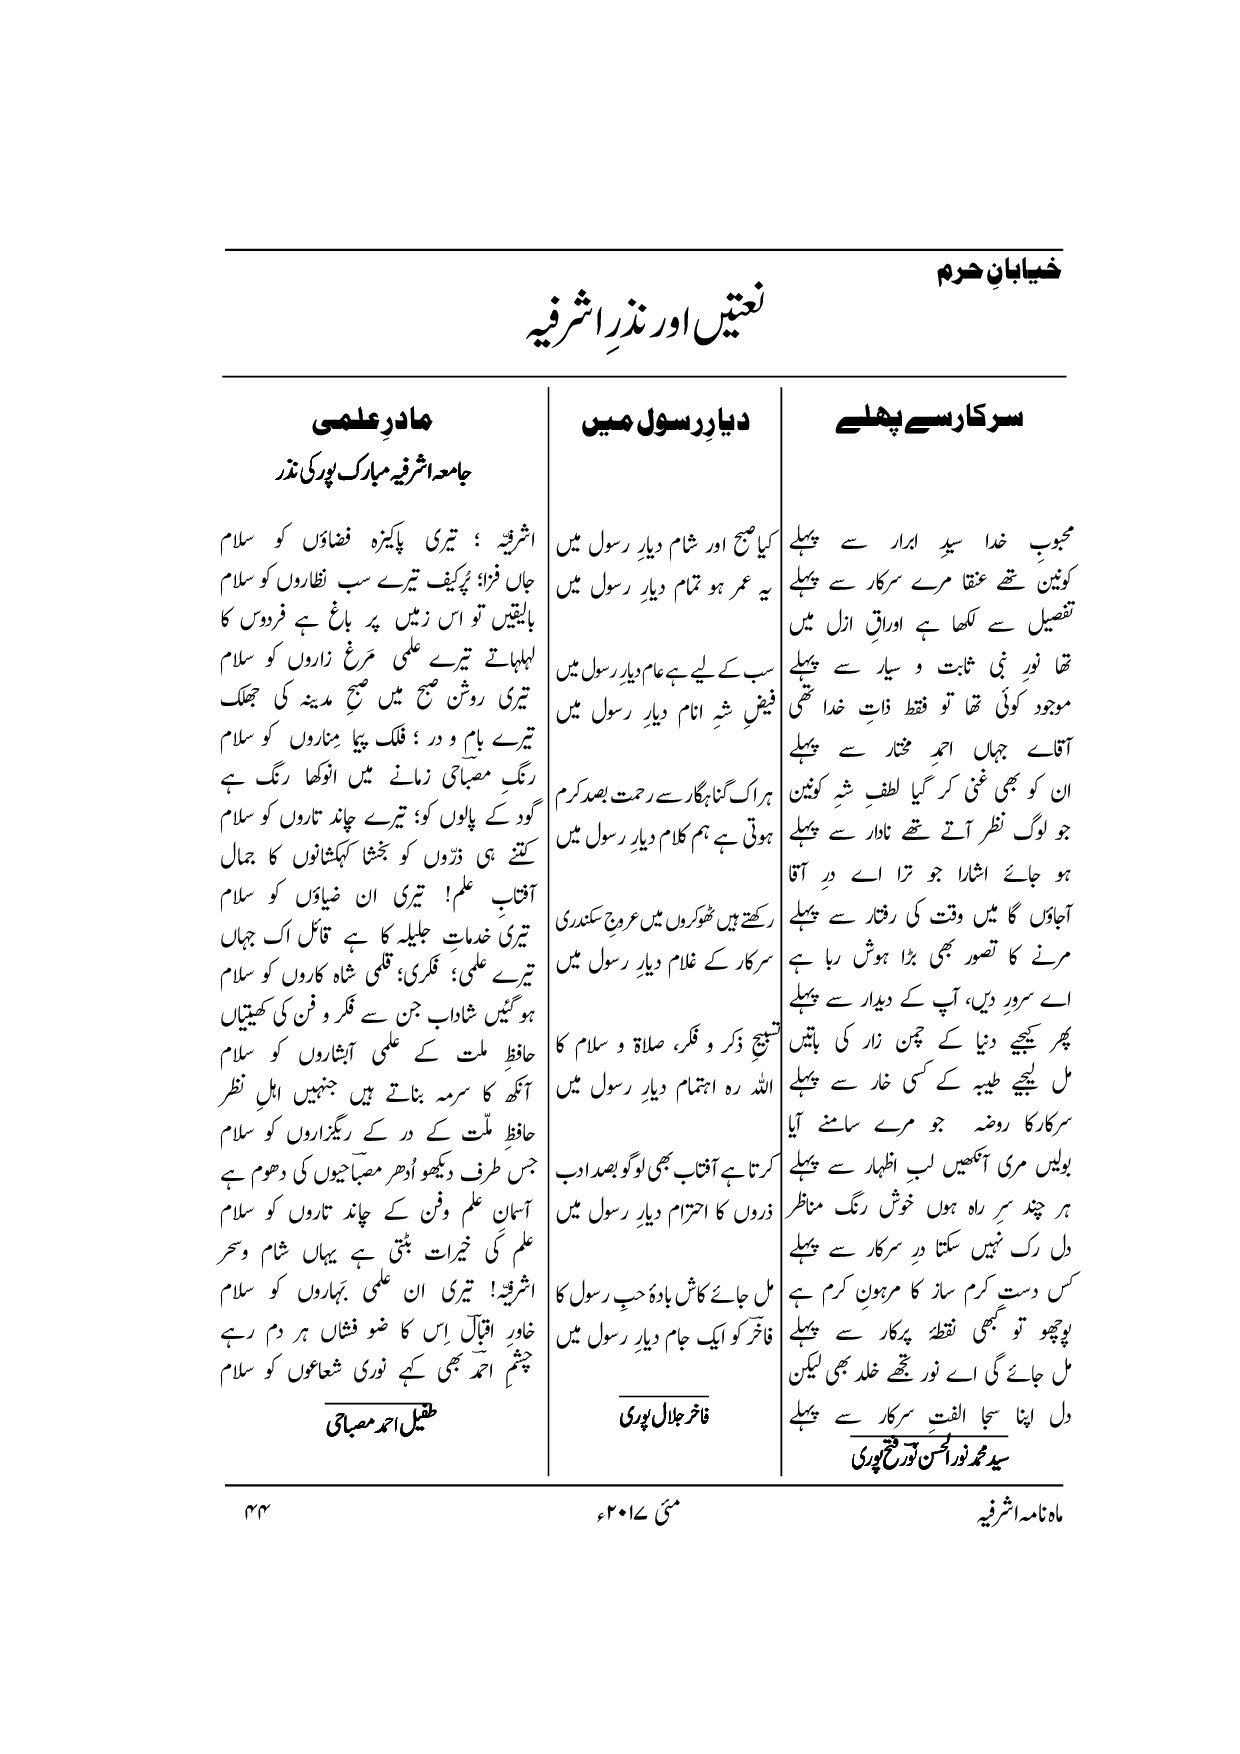 خیابانِ حرم
نعتیں اور نذرِ اشرفیہ
سرکار سے پہلے
محبوبِ خدا سیدِ ابرار سے پہلے
کونین تھے عنقا مرے سرکار سے پہلے
تفصیل سے لکھا ہے اوراقِ ازل میں
تھا نورِ نبی ثابت و سیار سے پہلے
موجود کوئی تھا تو فقط ذاتِ خدا تھی
آقاے جہاں احمدِ مختار سے پہلے
ان کو بھی غنی کر گیا لطفِ شہِ کونین
جو لوگ نظر آتے تھے نادار سے پہلے
ہو جائے اشارا جو ترا اے درِ آقا
آجاؤں گا میں وقت کی رفتار سے پہلے
مرنے کا تصور بھی بڑا ہوش ربا ہے
اے سرورِ دیں، آپ کے دیدار سے پہلے
پھر کیجیے دنیا کے چمن زار کی باتیں
مل لیجیے طیبہ کے کسی خار سے پہلے
سرکارکا روضہ جو مرے سامنے آیا
بولیں مری آنکھیں لبِ اظہار سے پہلے
ہر چند سرِ راہ ہوں خوش رنگ مناظر
دل رک نہیں سکتا درِ سرکار سے پہلے
کس دستِ کرم ساز کا مرہونِ کرم ہے
پوچھو تو کبھی نقطۂ پرکار سے پہلے
مل جائے گی اے نور تجھے خلد بھی لیکن
دل اپنا سجا الفتِ سرکار سے پہلے
سید محمد نور الحسن نورؔ فتح پوری
دیارِ رسول میں
کیا صبح اور شام دیارِ رسول میں
یہ عمر ہو تمام دیارِ رسول میں
سب کے لیے ہے عام دیارِ رسول میں
فیضِ شہِ انام دیارِ رسول میں
ہر اک گناہگار سے رحمت بصد کرم
ہوتی ہے ہم کلام دیارِ رسول میں
رکھتے ہیں ٹھوکروں میں عروجِ سکندری
سرکار کے غلام دیارِ رسول میں
تسبیحِ ذکر و فکر، صلاۃ و سلام کا
اللہ رہ اہتمام دیارِ رسول میں
کرتا ہے آفتاب بھی لوگو بصد ادب
ذروں کا احترام دیارِ رسول میں
مل جائے کاش بادۂ حبِ رسول کا
فاخرؔ کو ایک جام دیارِ رسول میں
فاخر جلال پوری
مادرِ علمی
جامعہ اشرفیہ مبارک پور کی نذر
اشرفیّہ ؛ تیری پاکیزہ فضاؤں کو سلام
جاں فزا؛ پُرکیف تیرے سب نظاروں کو سلام
بالیقیں تو اس زمیں پر باغ ہے فردوس کا
لہلہاتے تیرے علمی مَرغ زاروں کو سلام
تیری روشن صبح میں صبحِ مدینہ کی جھلک
تیرے بام و در ؛ فلک پیما مِناروں کو سلام
رنگِ مصباحیؔ زمانے میں انوکھا رنگ ہے
گود کے پالوں کو؛ تیرے چاند تاروں کو سلام
کتنے ہی ذرّوں کو بخشا کہکشانوں کا جمال
آفتابِ علم! تیری ان ضیاؤں کو سلام
تیری خدماتِ جلیلہ کا ہے قائل اک جہاں
تیرے علمی؛ فکری؛ قلمی شاہ کاروں کو سلام
ہو گئیں شاداب جن سے فکر و فن کی کھیتیاں
حافظِ ملت کے علمی آبشاروں کو سلام
آنکھ کا سرمہ بناتے ہیں جنہیں اہلِ نظر
حافظِ ملّت کے در کے ریگزاروں کو سلام
جس طرف دیکھو اُدھر مصباحیوں کی دھوم ہے
آسمانِ علم وفن کے چاند تاروں کو سلام
علم کی خیرات بٹتی ہے یہاں شام وسحر
اشرفیّہ! تیری ان علمی بَہاروں کو سلام
خاورِ اقبالؔ اِس کا ضو فشاں ہر دم رہے
چشمِ احمدؔ بھی کہے نوری شعاعوں کو سلام
طفیل احمد مصباحی
ماہ نامہ اشرفیہ
مئی ۲۰۱۷ء
۴۴